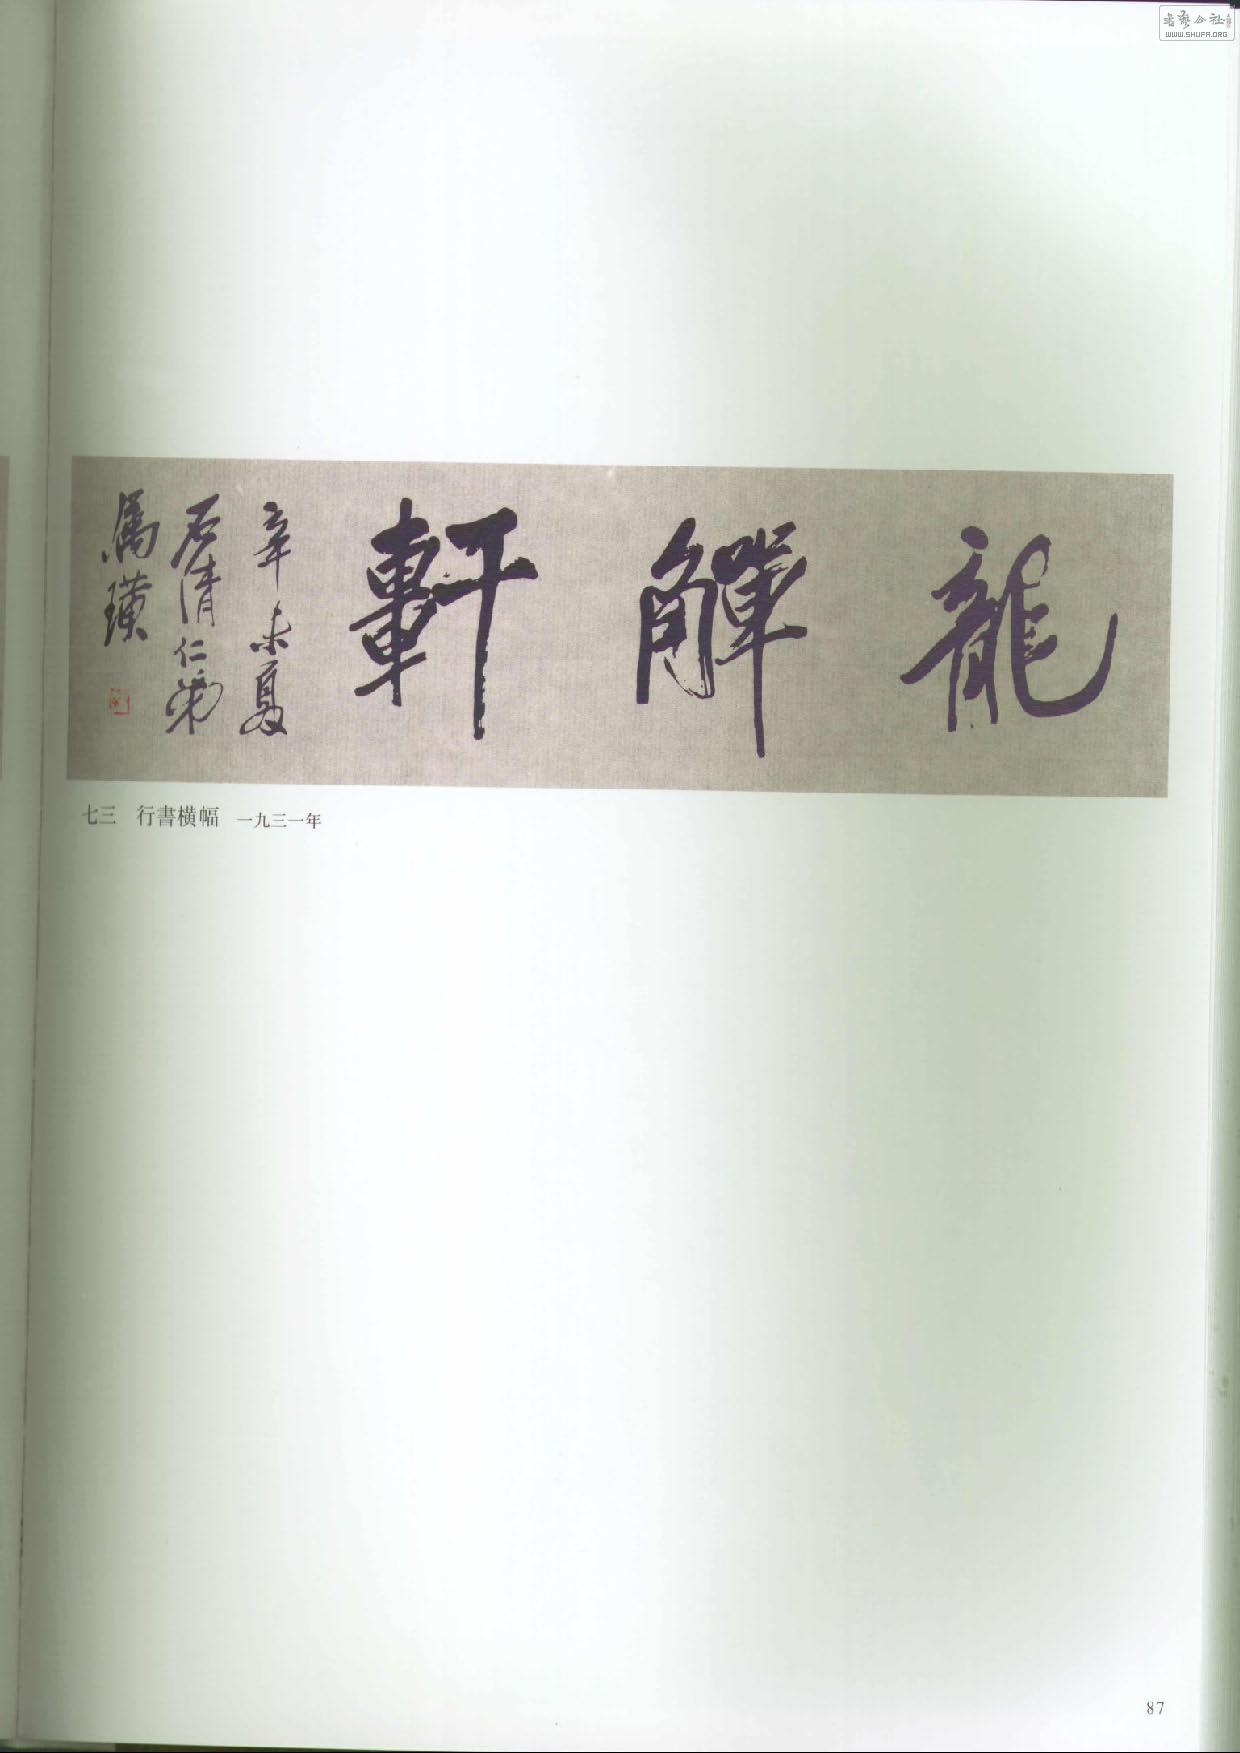 書藝公社
WWW.SHUFA.ORG
龍觶軒
辛未夏
石清仁弟
属璜
七三 行書横幅 一九三一年
87